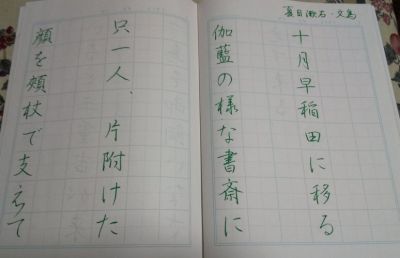 夏目漱石・文鳥
十月早稲田に移る
伽藍の様な書斎に
只一人、片附けた
顔を頬杖で支えて